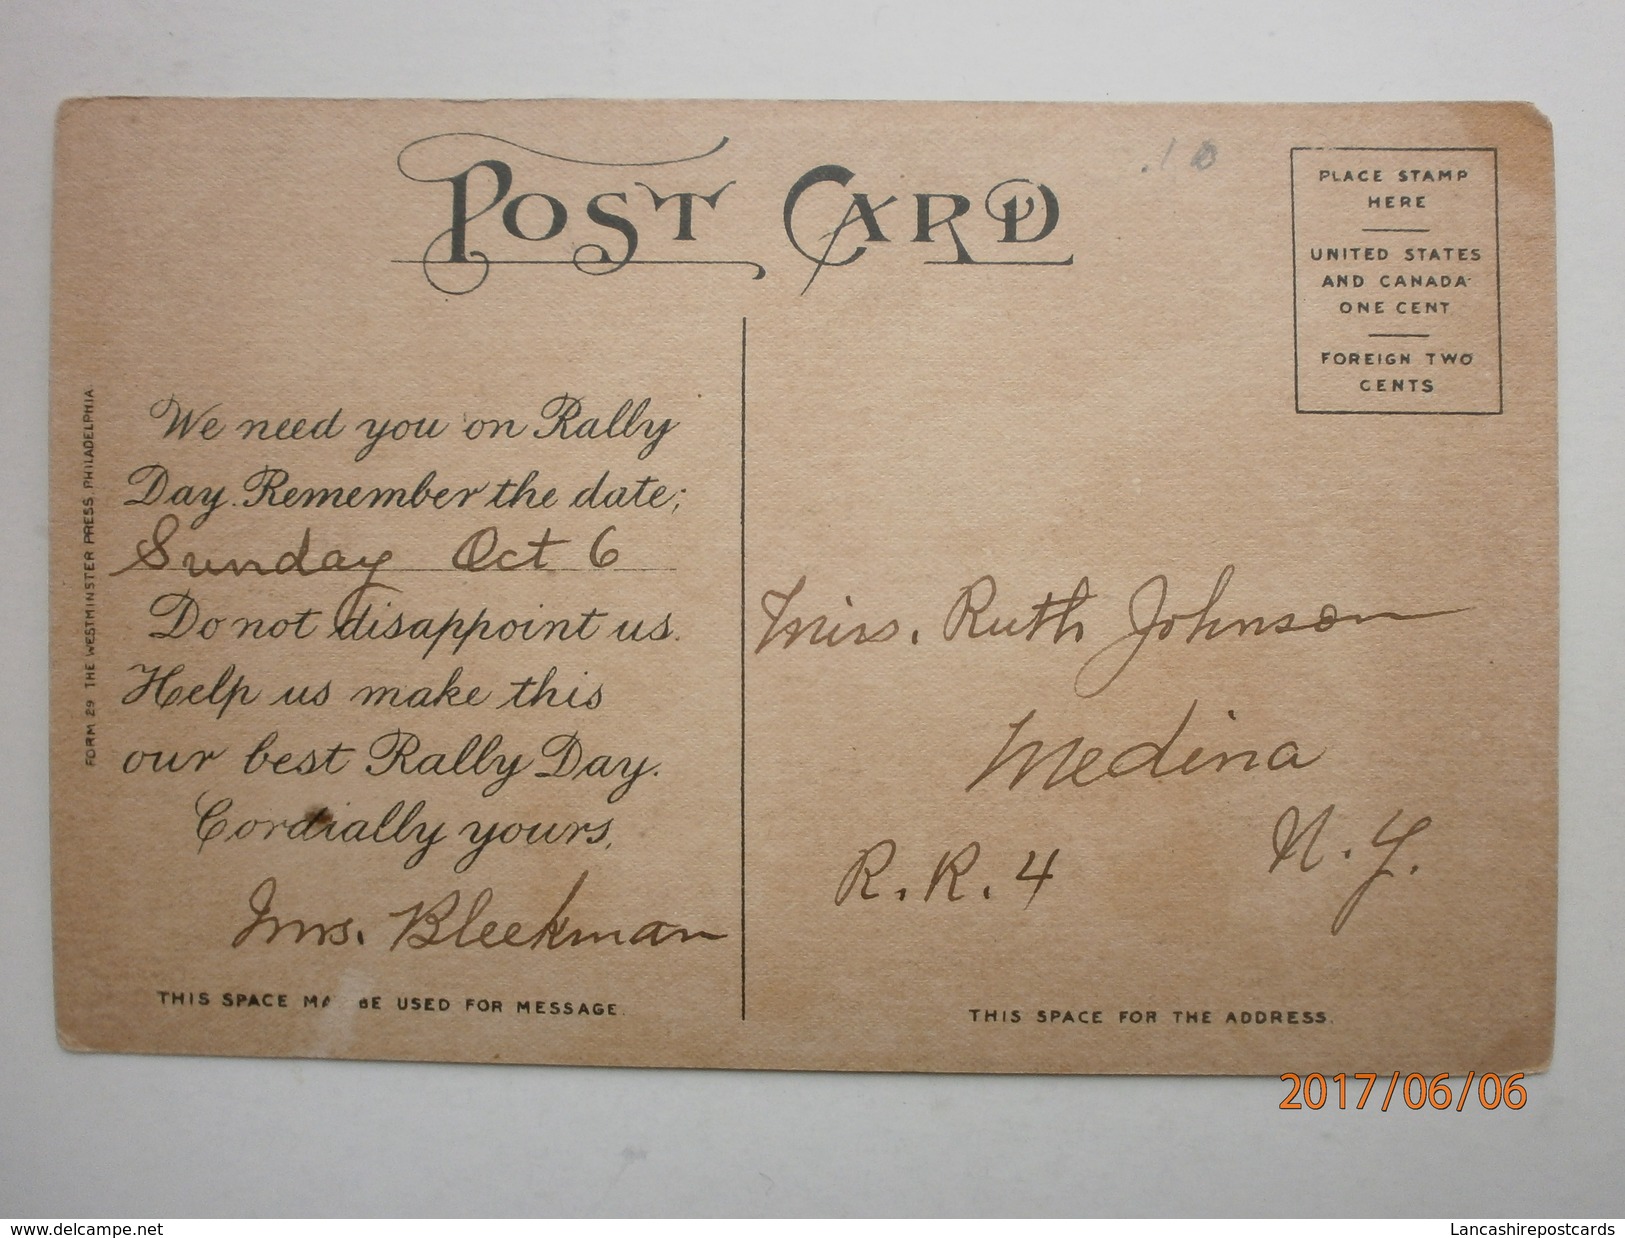 POST CARD
.10
PLACE STAMP
HERE
UNITED STATES
AND CANADA
ONE CENT
FOREIGN TWO
CENTS
FORM 29 THE WESTMINSTER PRESS PHILADELPHIA
We need you on Rally
Day. Remember the date;
Sunday Oct 6
Do not disappoint us.
Help us make this
our best Rally Day.
Cordially yours,
Mrs. Bleekman
THIS SPACE MA BE USED FOR MESSAGE.
Miss. Ruth Johnson
Medina
N.Y.
R.R.4
THIS SPACE FOR THE ADDRESS.
2017/06/06
www.delcampe.net
Lancashirepostcards